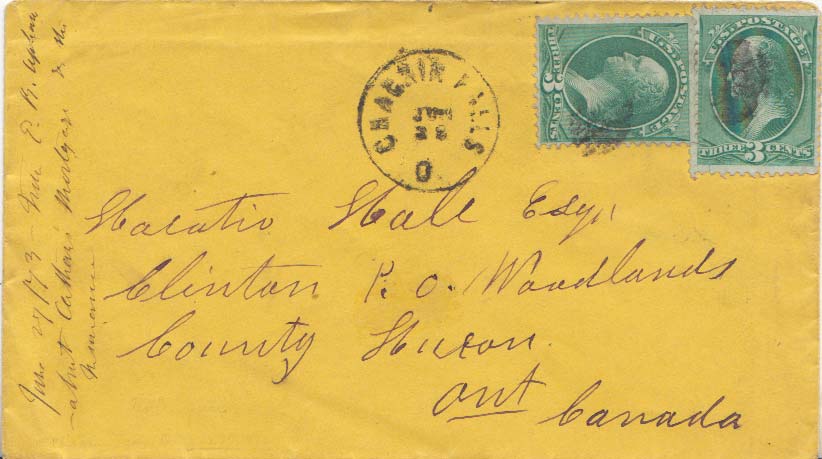 June 27/73 – from E. B.
about Cathan's Mortgage & the
Insurance
CHAGRIN FALLS
JUN
28
O
U.S. POSTAGE
THREE 3 CENTS
U.S. POSTAGE
THREE 3 CENTS
Horatio Hale Esq.
Clinton P. O. Woodlands
County Huron.
Ont Canada